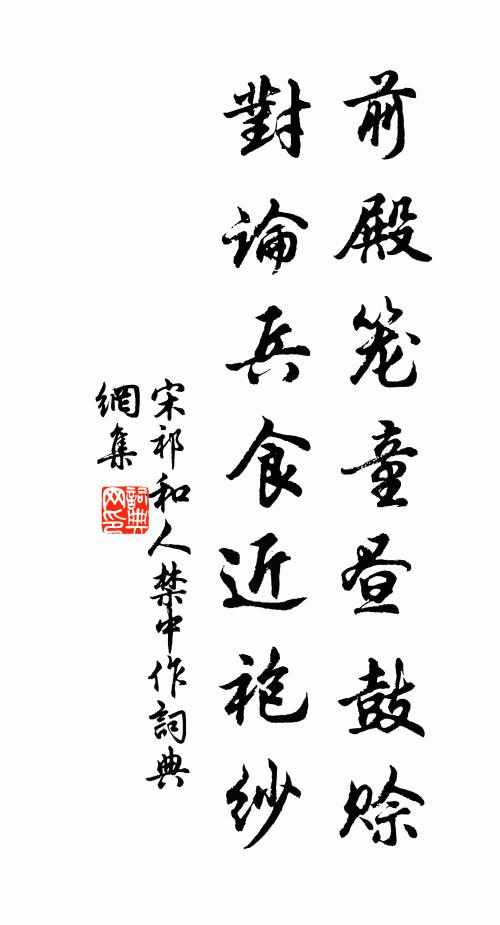 前殿笼童昼鼓赊
對論兵食近袍紗
宋祁和人禁中作詞典
網集
詞典
网印